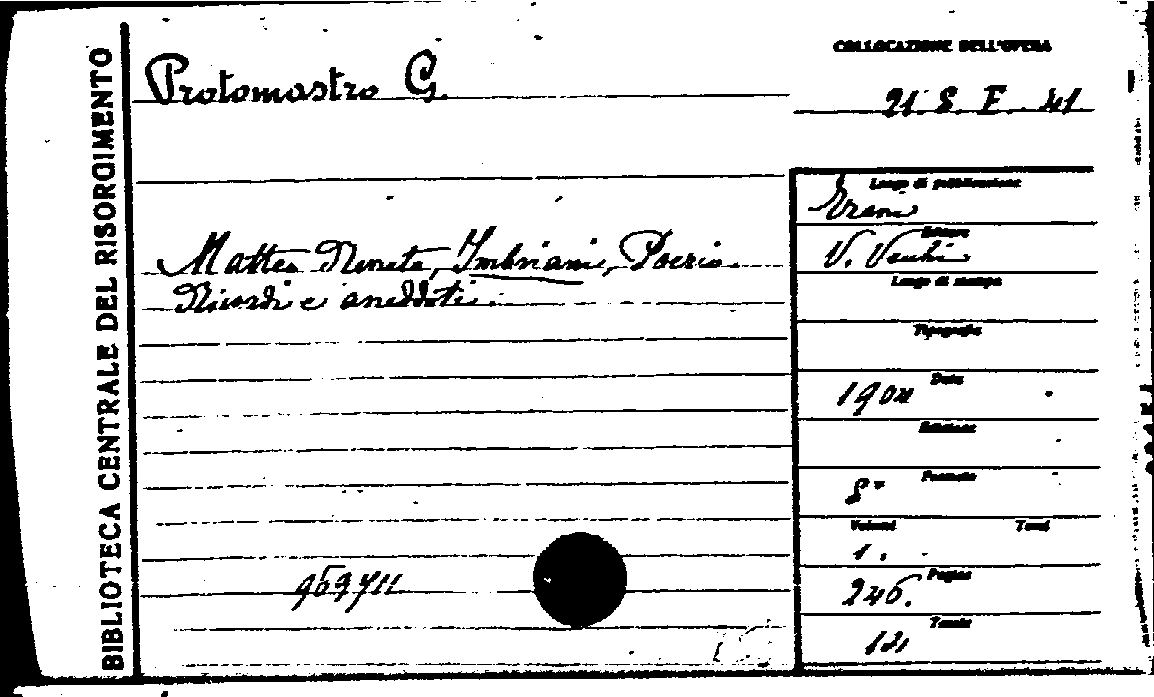 BIBLIOTECA CENTRALE DEL RISORGIMENTO
Protomastro G.
COLLOCAZIONE DELL'OPERA
21. 8. F. 41
Matteo Renato, Imbriani, Poerio.
Ricordi e aneddoti.
Luogo di pubblicazione
Trani
Editore
V. Vecchi
Luogo di stampa
Tipografia
Data
Edizione
Formato
8°
Volumi Tomi
1.
Pagine
246.
Tavole